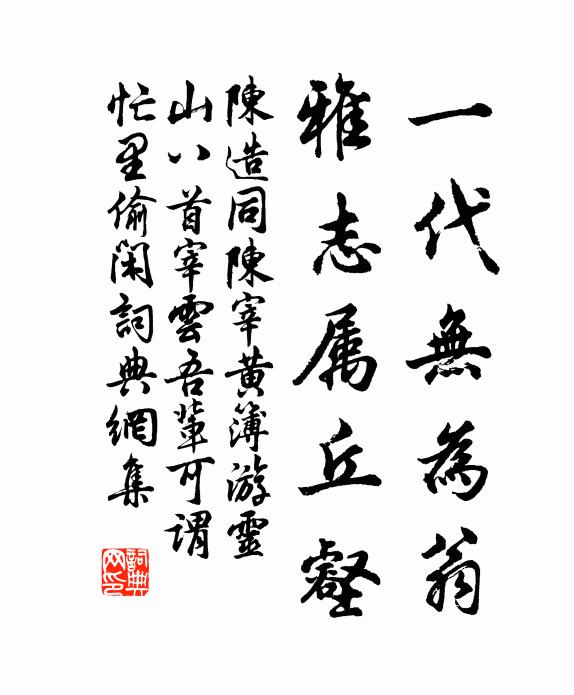 一代無為翁
雅志属丘壑
陳造同陳宰黃簿游靈
山八首宰雲吾輩可謂
忙里偷閑詞典網集
詞典网印